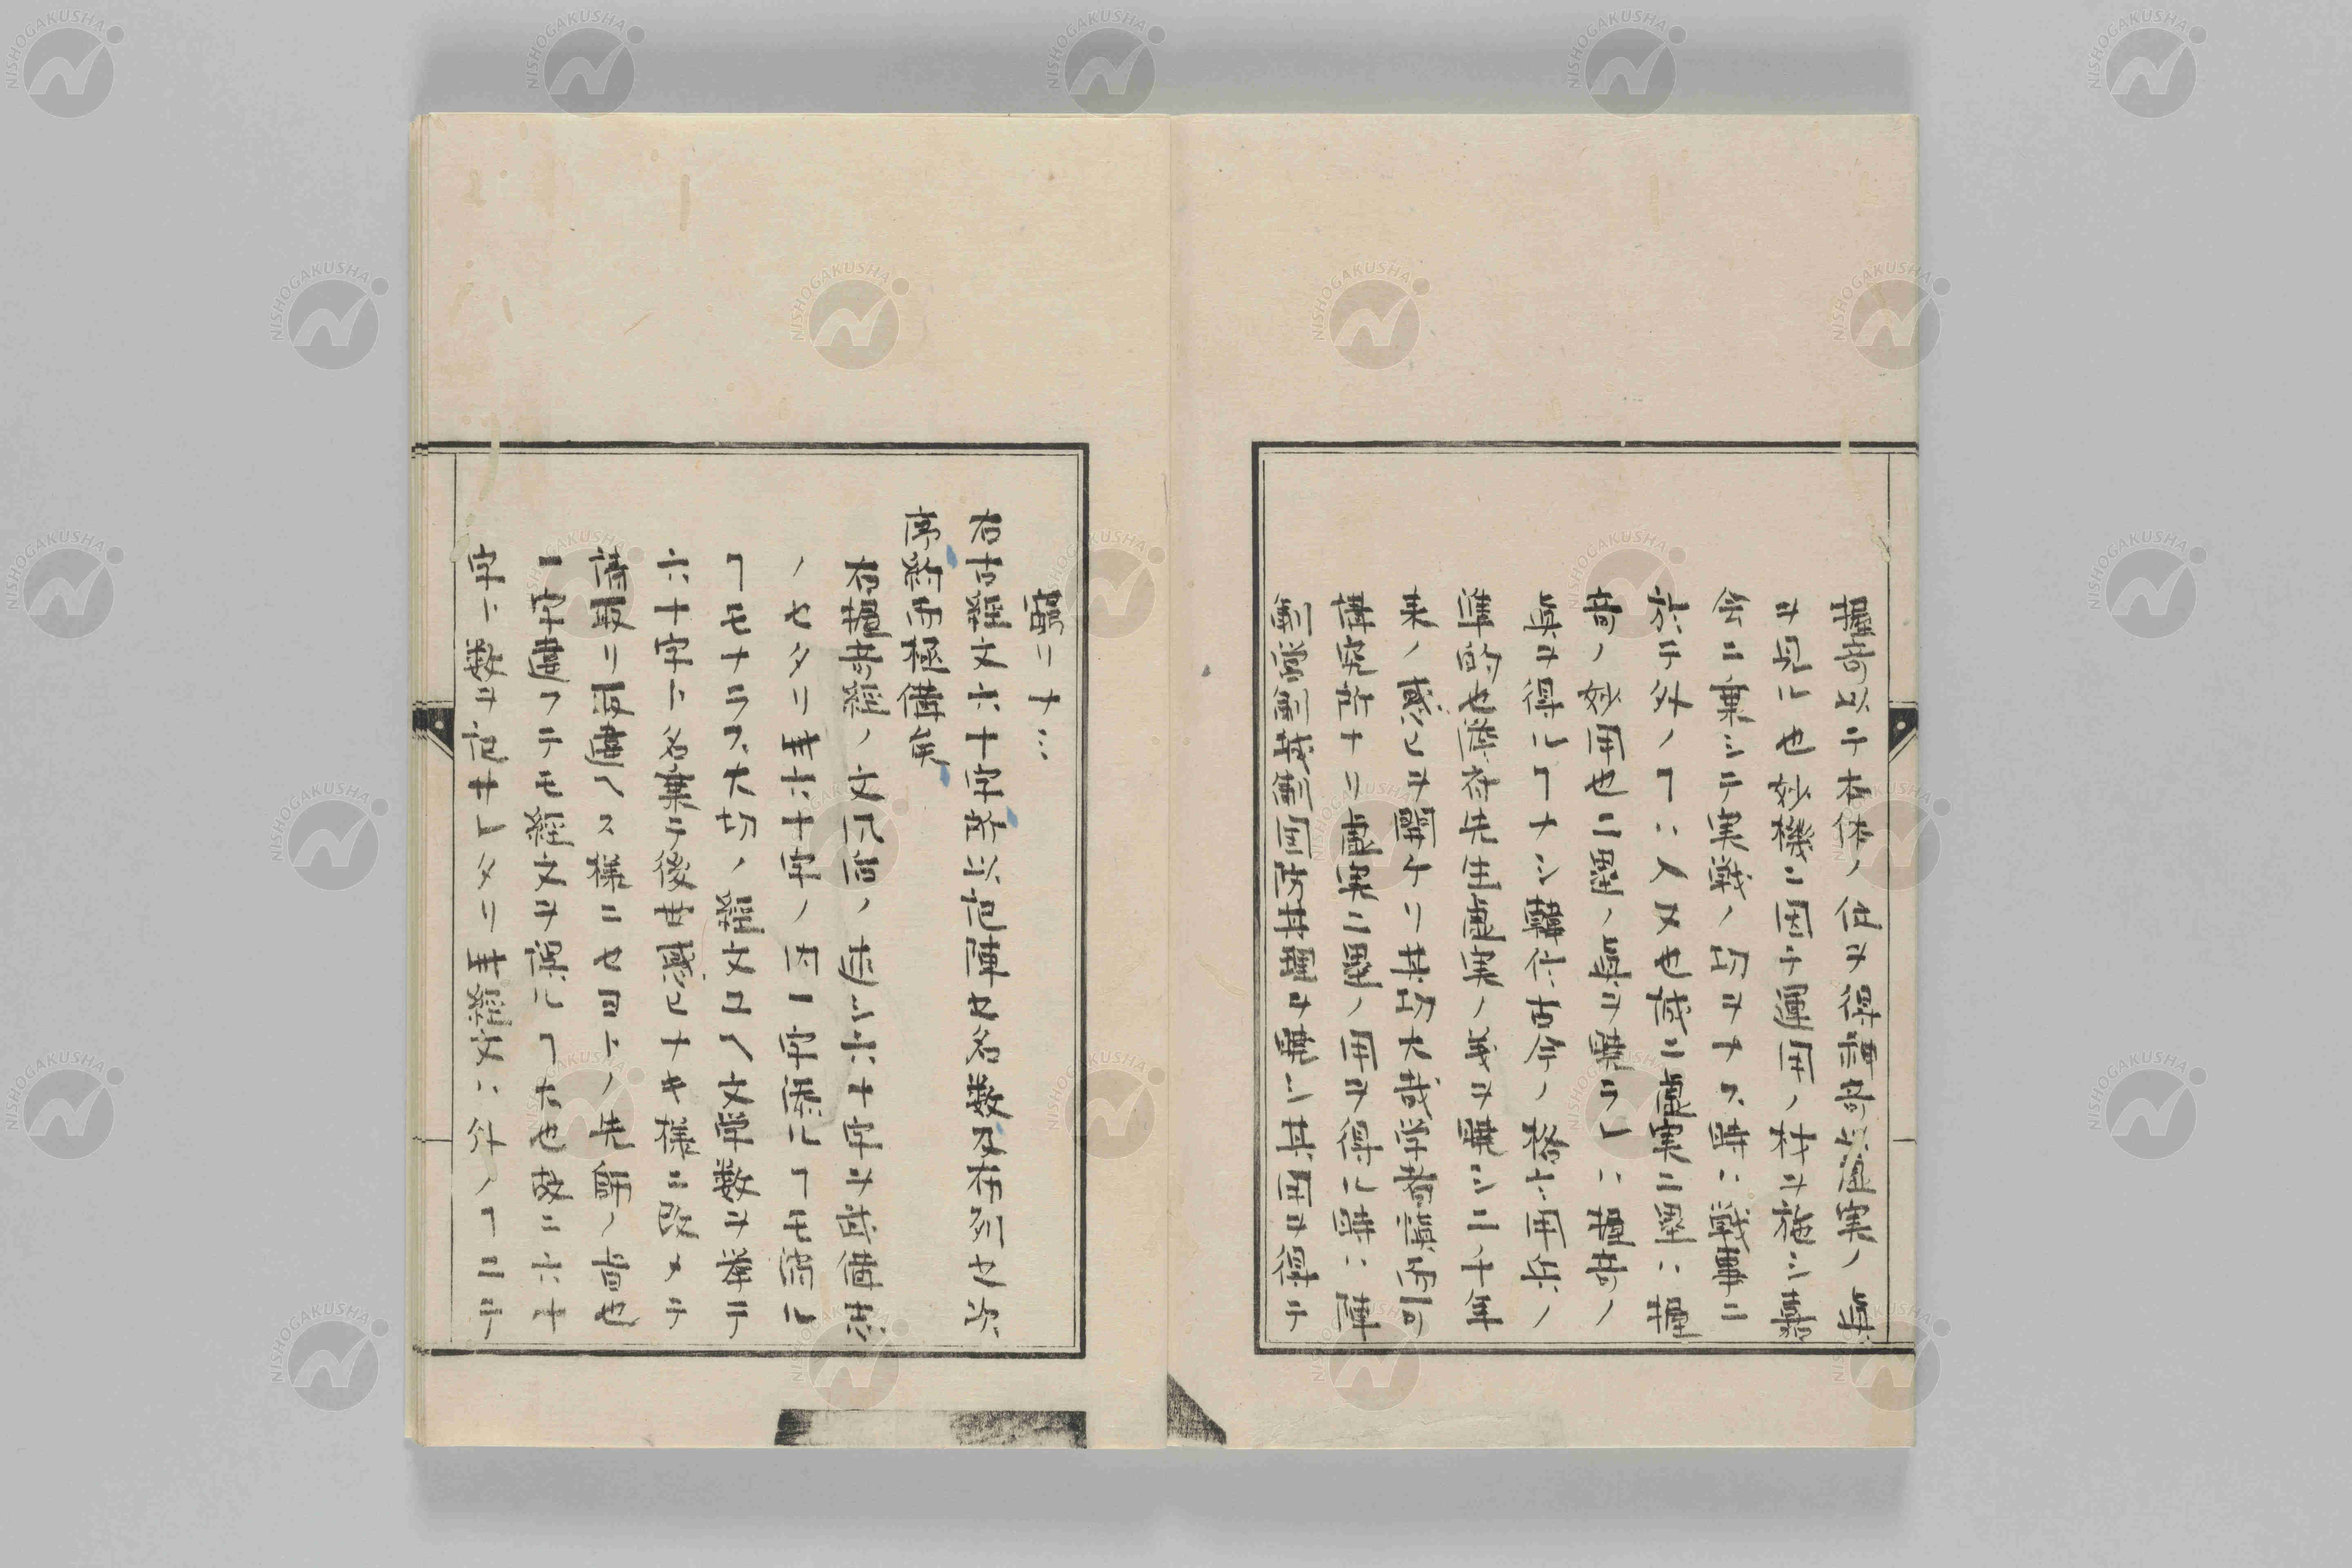 握奇以テ本体ノ位ヲ得游奇以虚実ノ真
ヲ見ル也妙機ニ因テ運用ノ材ヲ施シ嘉
会ニ乗シテ実戦ノ功ヲナス時ハ戦事ニ
於テ外ノヿハ入又也誠ニ虚実二塁ハ握
奇ノ妙用也二塁ノ真ヲ暁ラレハ握奇ノ
真ヲ得ルヿナシ韓仕古今ノ格ト用兵ノ
準的也徂徠先生虚実ノ義ヲ暁シ二千年
来ノ惑ヒヲ開ケリ其功大哉学者慎而可
講究所ナリ虚実二塁ノ用ヲ得ル時ハ陣
制営制戦制固ヨリ其理ヲ暁シ其用ヲ得テ
窮リナシ
右古経文六十字所以記陣之名数及布列之次
序約而極備矣
右握奇経ノ文風后ノ述シ六十字ヲ武備志
ノセタリ其六十字ノ内一字添ルヿモ陥ル
ヿモナラス大切ノ経文ユヘ文字数ヲ挙テ
六十字ト名乗テ後世惑ヒナキ様ニ改メテ
請取リ取違ヘス様ニセヨトノ先師ノ旨也
一字違フテモ経文ヲ誤ルヿナ也故ニ六十
字ト数ヲ記サレタリ其経文ハ外ノヿニテ